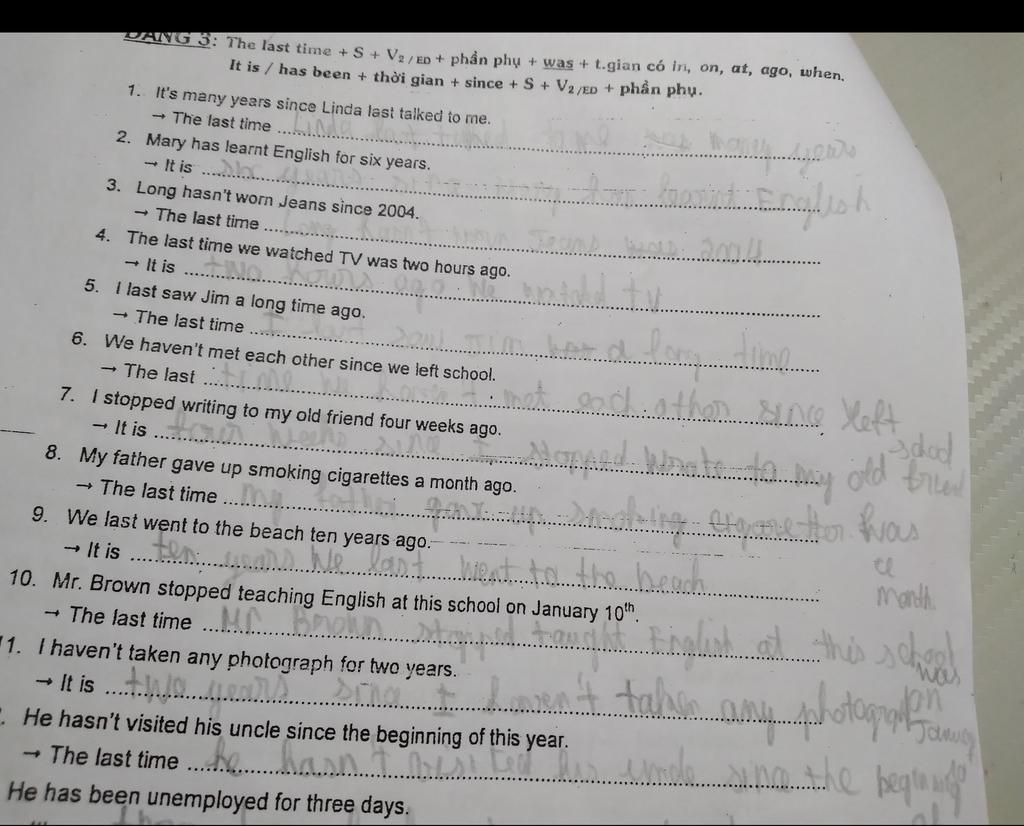 DẠNG 3: The last time + S + V2/ED + phần phụ + was + t.gian có in, on, at, ago, when.
It is / has been + thời gian + since + S + V2/ED + phần phụ.
1. It's many years since Linda last talked to me.
→ The last time Linda was many years
2. Mary has learnt English for six years.
→ It is six learnt English
3. Long hasn't worn Jeans since 2004.
→ The last time Long Jeans was 2004
4. The last time we watched TV was two hours ago.
→ It is two hours ago we TV
5. I last saw Jim a long time ago.
→ The last time I last saw Jim a long time
6. We haven't met each other since we left school.
→ The last time we haven't met each other since left
school
7. I stopped writing to my old friend four weeks ago.
→ It is four weeks since I stopped to my old
8. My father gave up smoking cigarettes a month ago.
→ The last time my father gave up smoking was
a
month.
9. We last went to the beach ten years ago.
→ It is ten years we last went to the beach
10. Mr. Brown stopped teaching English at this school on January 10th.
→ The last time Mr Brown stopped taught English at this school
was
on
11. I haven't taken any photograph for two years.
→ It is two years since I haven't taken any photograph
. He hasn't visited his uncle since the beginning of this year.
→ The last time he hasn't visited his since the
He has been unemployed for three days.